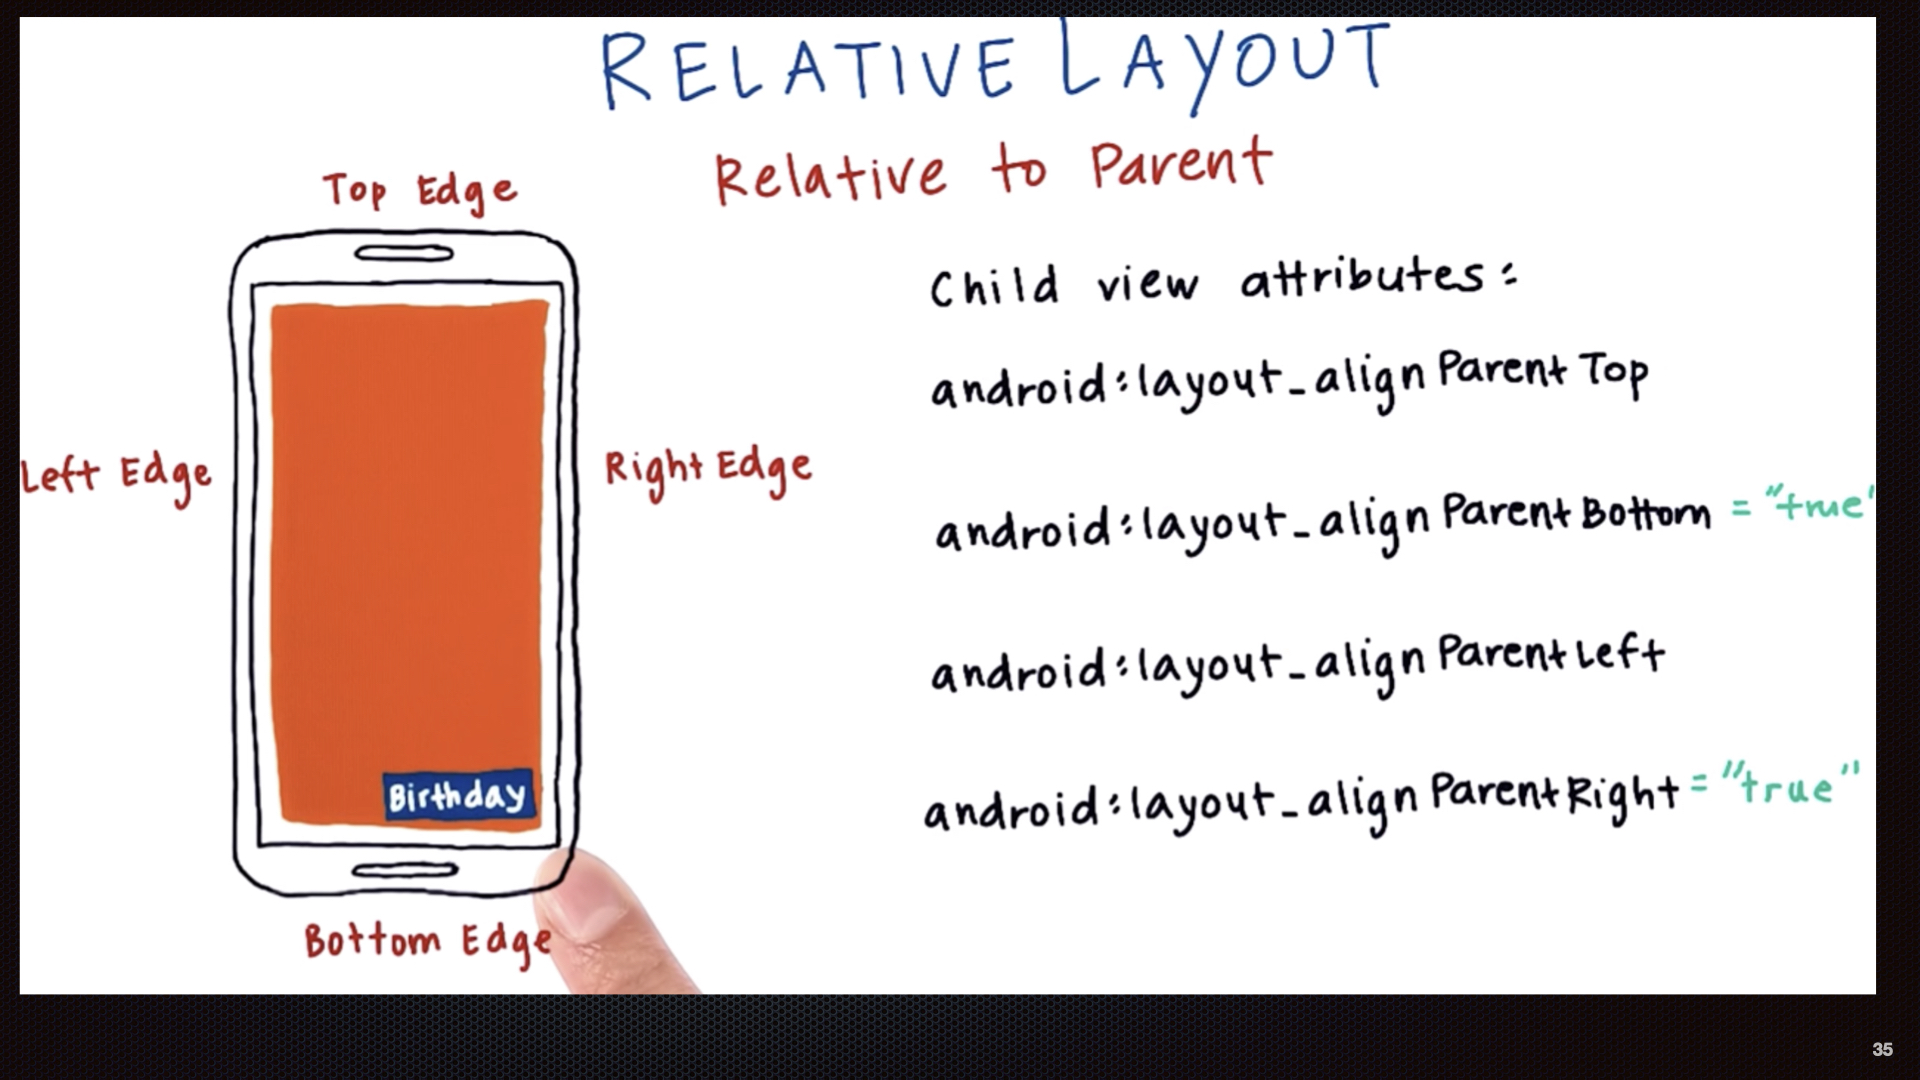 RELATIVE LAYOUT
Relative to Parent
Top Edge
Left Edge
Right Edge
Birthday
Bottom Edge
Child view attributes:
android:layout_alignParentTop
android:layout_alignParentBottom = "true"
android:layout_alignParentLeft
android:layout_alignParentRight = "true"
35